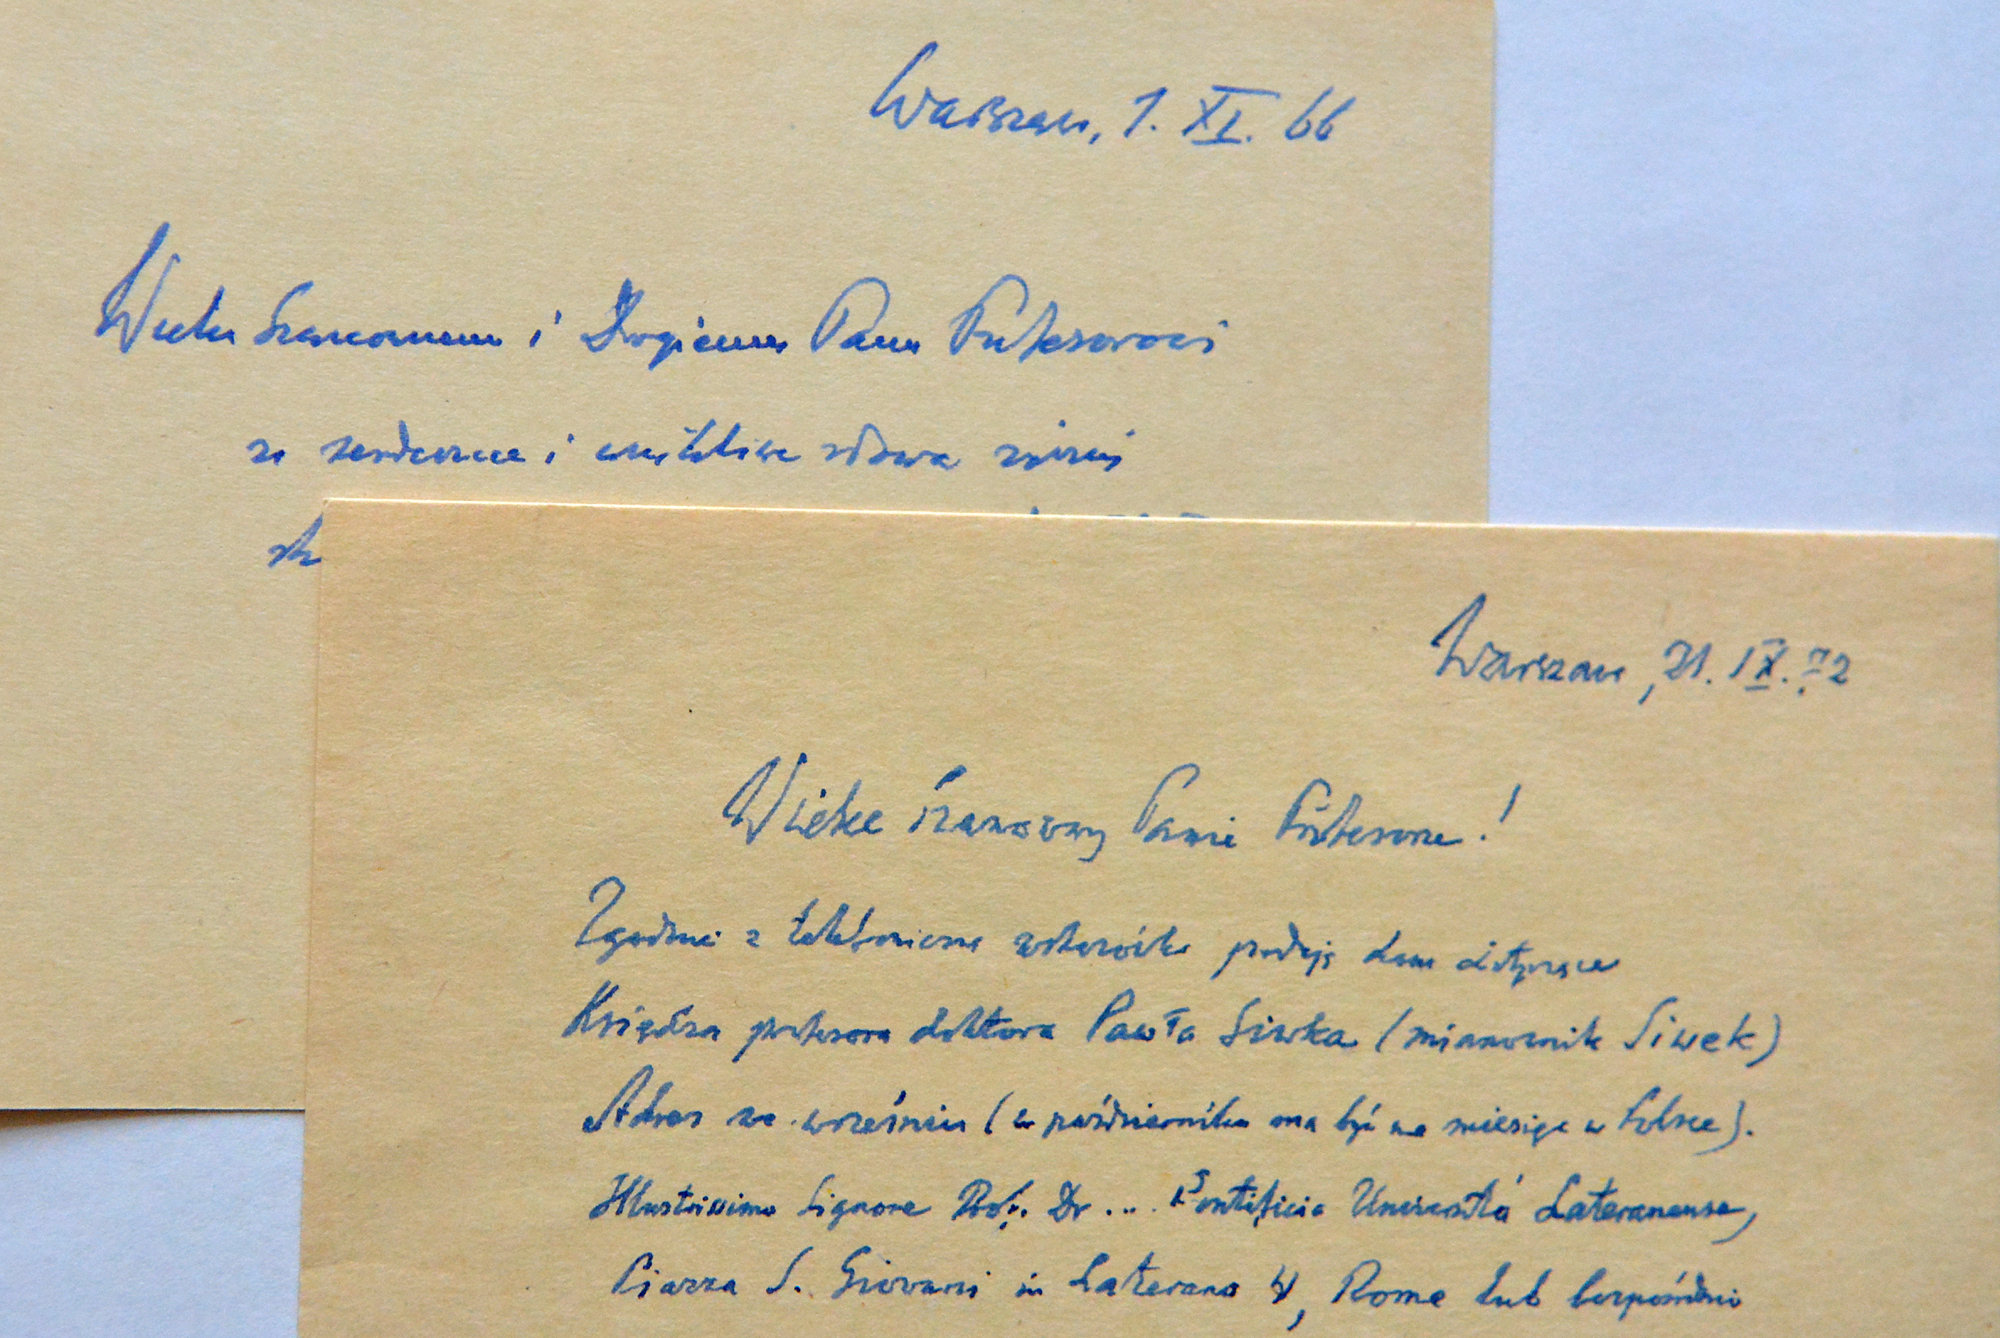 Warszawa, 1. XI. 66
Wielce Szanownemu i Drogiemu Panu Profesorowi
za serdeczne i życzliwe słowa
Warszawa, 21. IX. 72
Wielce Szanowny Panie Profesorze!
Zgodnie z telefoniczną podaję dane dotyczące
Księdza profesora doktora Pawła Siwka (mianownik Siwek)
Adres we wrześniu (w październiku ma być na miesiąc w Polsce).
Illustrissimo Signore Prof. Dr ... Pontificia Università Lateranense,
Piazza S. Giovanni in Laterano 4, Roma lub bezpośrednio